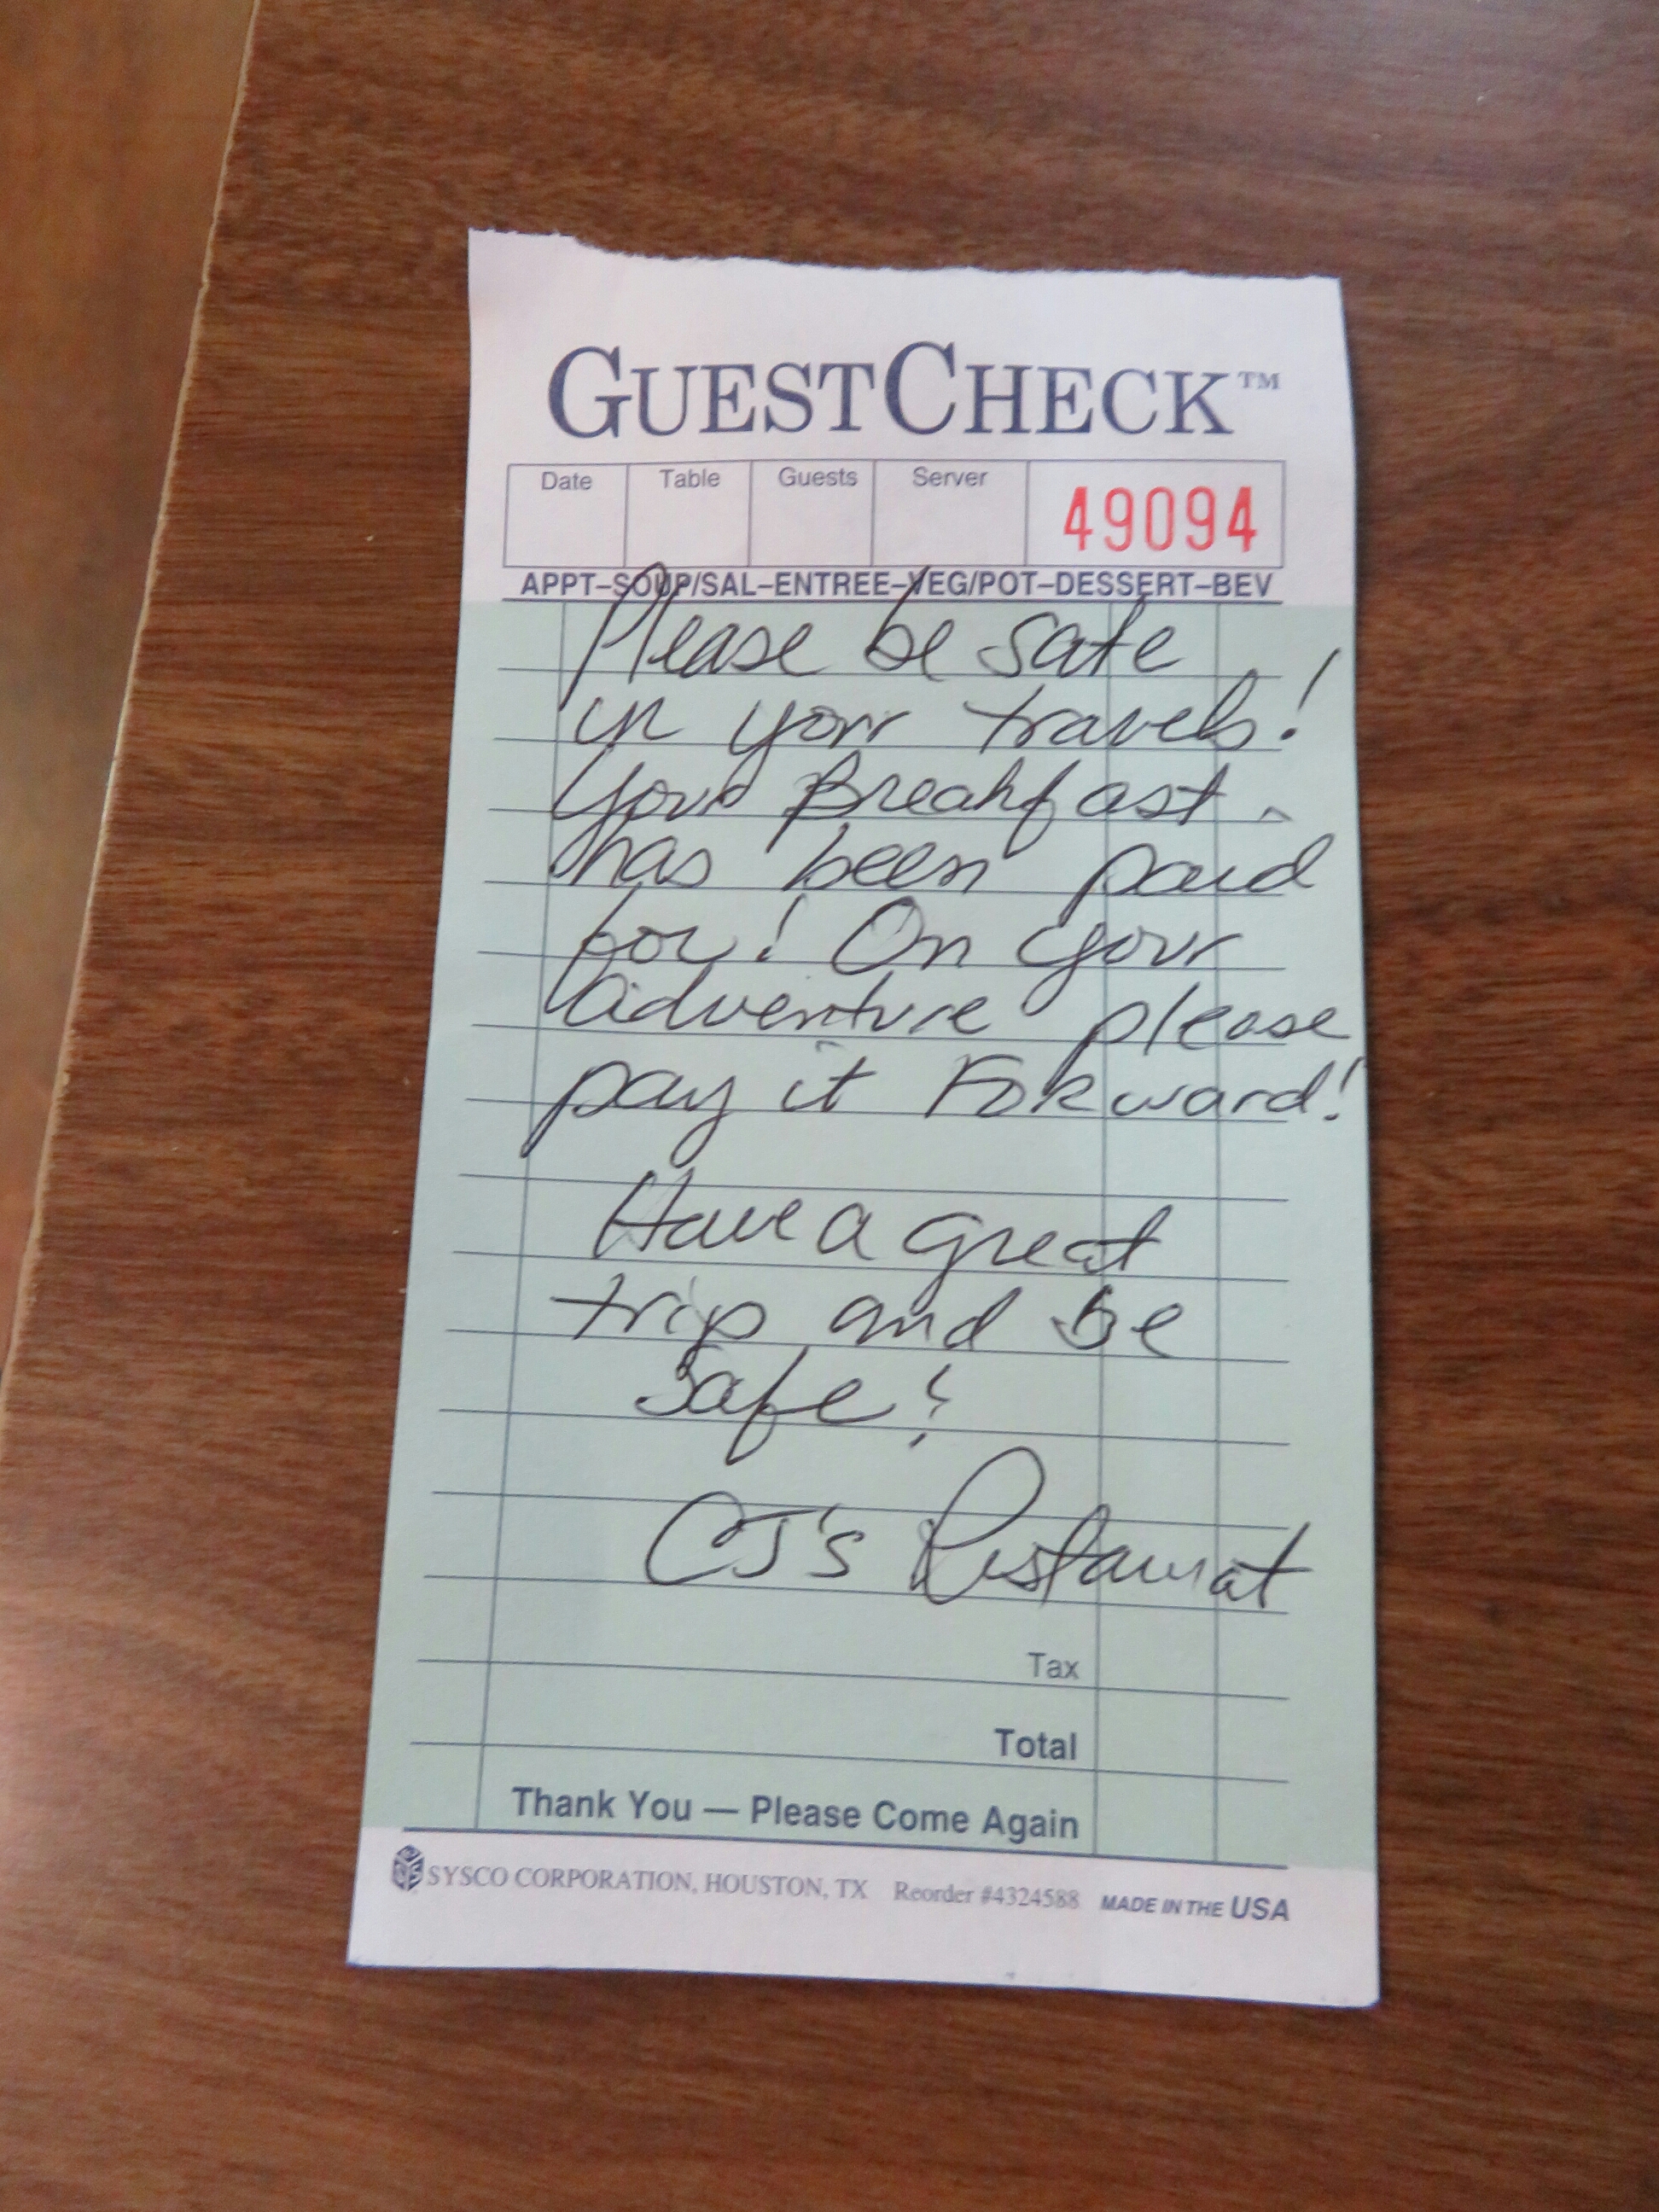 GUESTCHECK™
Date Table Guests Server 49094
APPT–SOUP/SAL–ENTREE–VEG/POT–DESSERT–BEV
Please be safe
in your travels!
Your Breakfast
has been paid
for! On your
adventure please
pay it Forward!
Have a great
trip and be
Safe!
CJ's Restaurat
Tax
Total
Thank You — Please Come Again
SYSCO CORPORATION, HOUSTON, TX Reorder #4324588 MADE IN THE USA